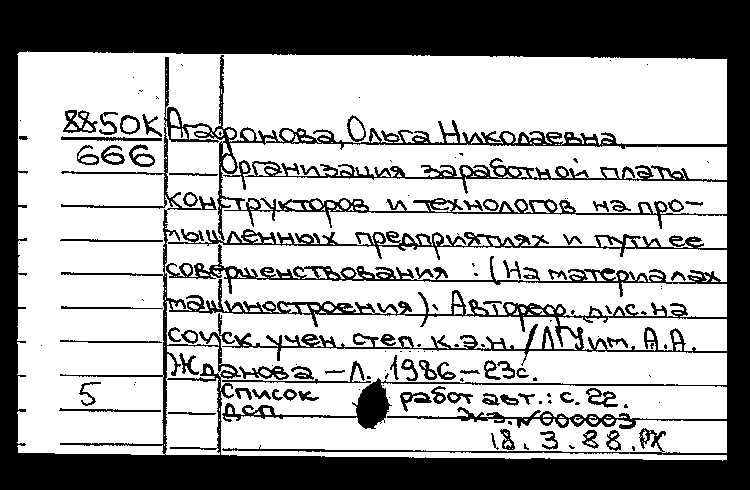 88-50К Агафонова, Ольга Николаевна.
666 Организация заработной платы
конструкторов и технологов на про-
мышленных предприятиях и пути ее
совершенствования : (На материалах
машиностроения): Автореф. дис. на
соиск. учен. степ. к.э.н. /ЛГУ им. А.А.
Жданова. -Л., 1986.-23с.
5 Список работ авт.: с. 22.
ДСП. Экз. №000003
18.3.88.